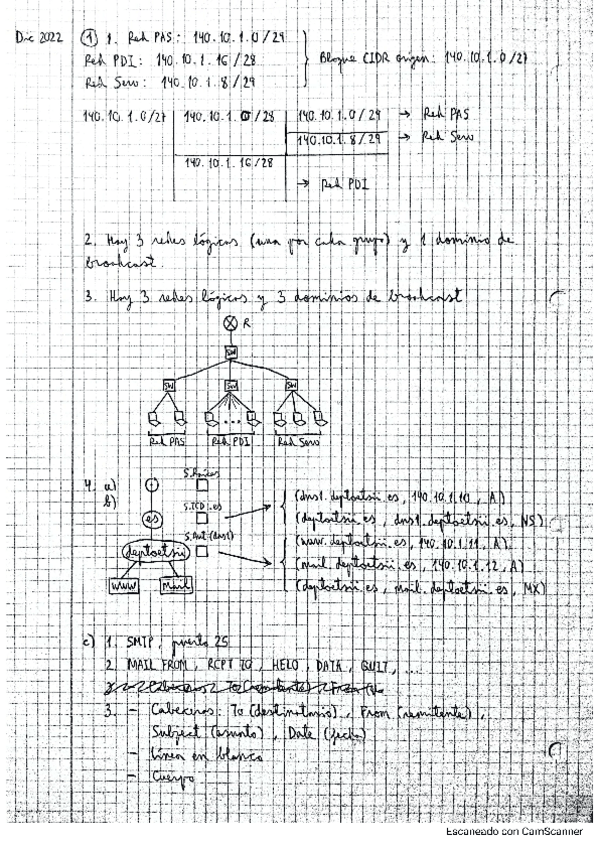 Dic 2022 ① 1. Red PAS: 140.10.1.0/29
Red PDI: 140.10.1.16/28 Bloque CIDR origen: 140.10.1.0/27
Red Serv: 140.10.1.8/29
140.10.1.0/27 140.10.1.0/28 140.10.1.0/29 → Red PAS
140.10.1.8/29 → Red Serv
140.10.1.16/28
→ Red PDI
2. Hay 3 redes lógicas (una por cada grupo) y 1 dominio de
broadcast.
3. Hay 3 redes lógicas y 3 dominios de broadcast
R
SW
SW SW SW
...
Red PAS Red PDI Red Serv
4. a) S.Raíces
b) (dns1.deptoetsii.es, 140.10.1.10, A)
es S.TLD .es (deptoetsii.es, dns1.deptoetsii.es, NS)
S.Aut (dns1) (www.deptoetsii.es, 140.10.1.11, A)
deptoetsii (mail.deptoetsii.es, 140.10.1.12, A)
www mail (deptoetsii.es, mail.deptoetsii.es, MX)
c) 1. SMTP, puerto 25
2. MAIL FROM, RCPT TO, HELO, DATA, QUIT, ...
3. - Cabeceras: To (destinatario), From (remitente),
Subject (asunto), Date (fecha)
- Línea en blanco
- Cuerpo
Escaneado con CamScanner